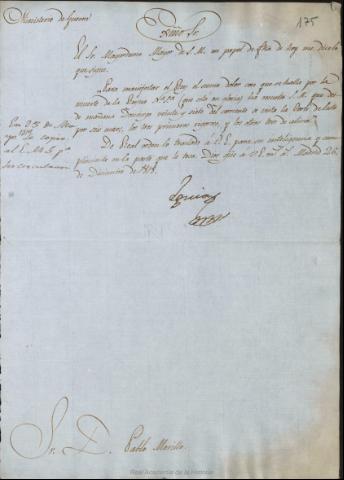 Ministerio de Guerra
175
Exmo Sr.
El Sr. Mayordomo Mayor de S. M. en papel de fha de hoy me dice lo
que sigue.
Para manifestar el Rey el sumo dolor con que se halla por la
muerte de la Reyna (que esté en gloria) ha resuelto S. M. que desde
de mañana Domingo veinte y siete del corriente se vista la Corte de luto
por seis meses, los tres primeros rigoroso, y los otros tres de alivio.
De Real orden lo traslado a V. E. para su inteligencia y cum
plimiento en la parte que le toca. Dios gue a V. E. ms as. Madrid 26
de Diciembre de
Eguia
Sr. D. Pablo Morillo.
Real Academia de la Historia